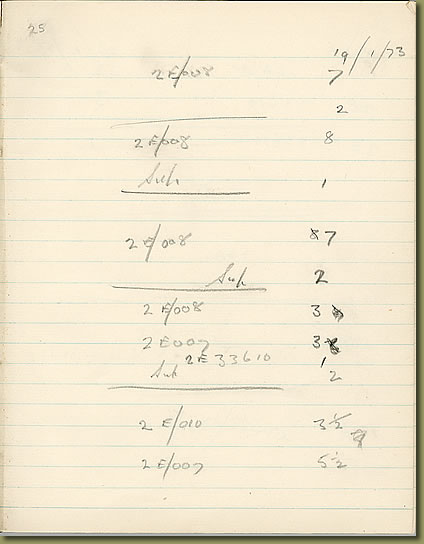 25
19/1/73
2E/008 7
2
2E/008 8
Sup 1
2E/008 7
Sup 2
2E/008 3
2E007 3
2E 33610 1
Sup 2
2E/010 3½
2E/007 5½